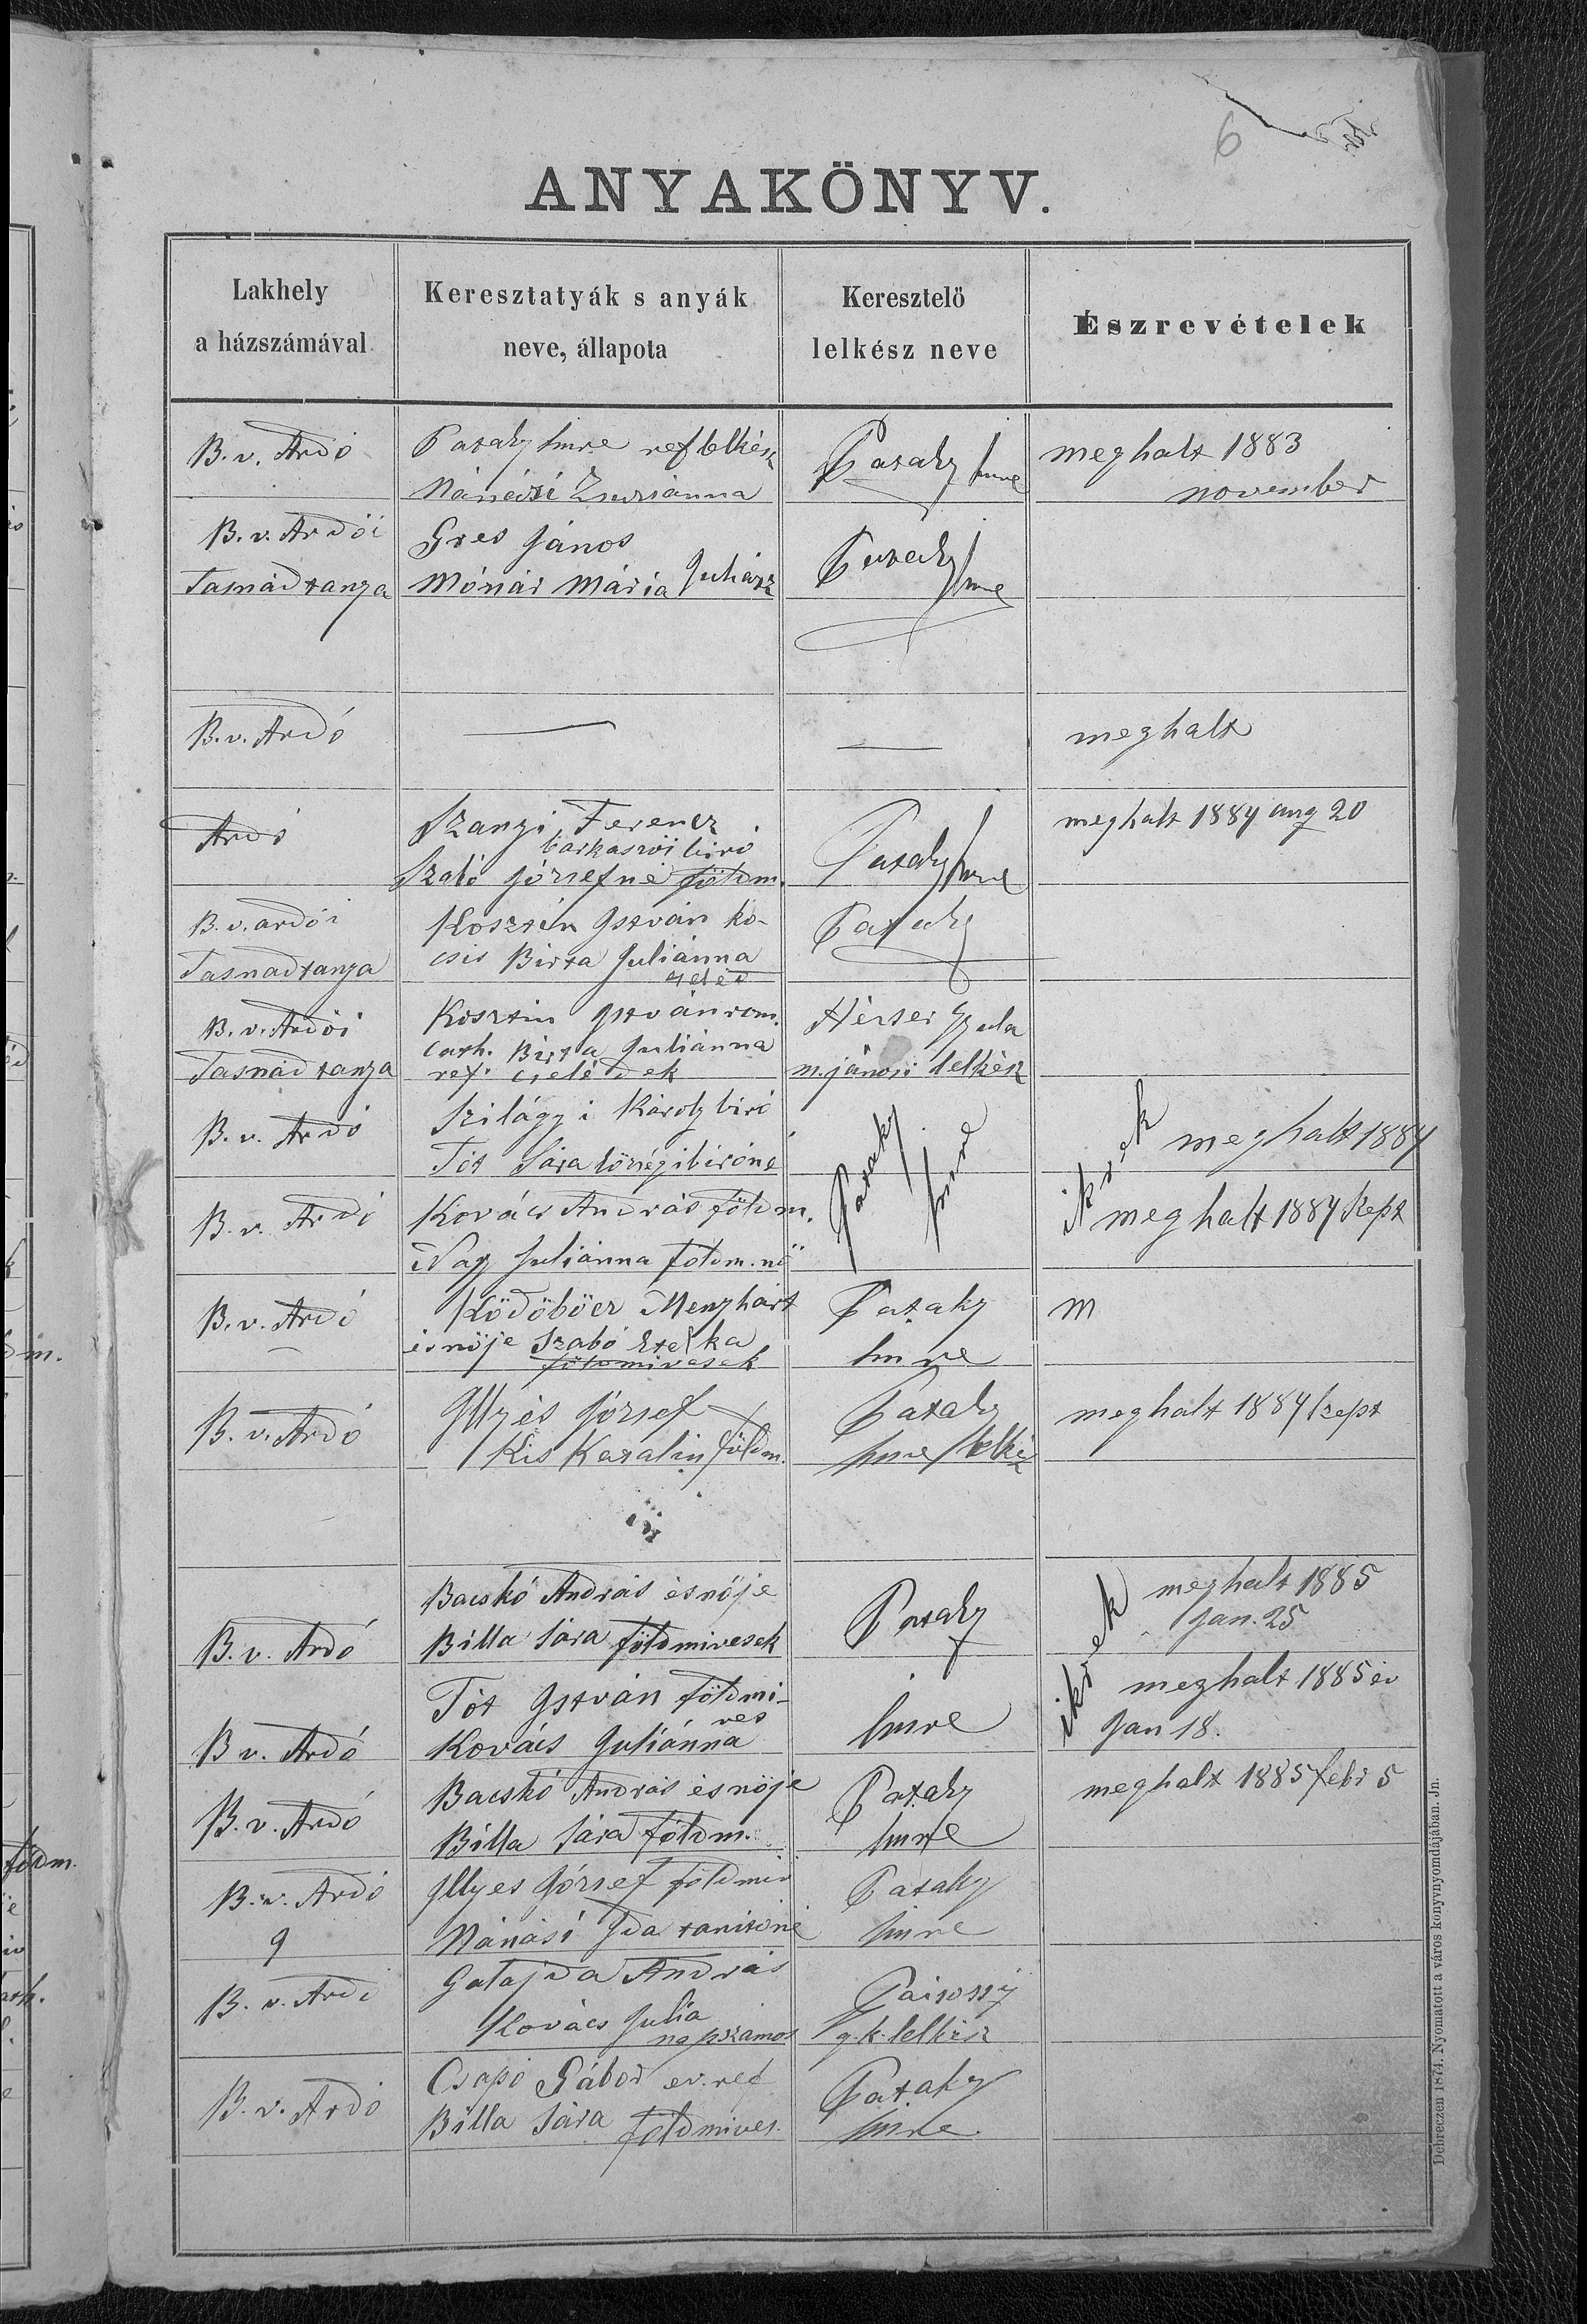 6
ANYAKÖNYV.
Lakhely
a házszámával
Keresztatyák s anyák
neve, állapota
Keresztelö
lelkész neve
Észrevételek
B. v. Ardó
Pataky Imre ref lelkész
Nánási Zsuzsánna
Pataky Imre
meghalt 1883
november
B. v. Ardói
Tasnád tanya
Gres János
Mónár Mária Juhász
Pataky Imre
B. v. Ardó
—
—
meghalt
Ardó
Szanyi Ferencz
barkaszói biró
Szabó Józsefné földm.
Pataky Imre
meghalt 1884 aug 20
B. v. ardói
Tasnadtanya
Kosztin István ko-
csis Birta Juliánna
cseléd
Pataky
B. v. Ardói
Tasnád tanya
Kosztin István rom.
cath. Birta Juliánna
ref. cselédek
Hérsei Gyula
m. jánosi lelkész
B. v. Ardó
Szilágyi Károly biró
Tót Sára községi biróné
Pataky Imre
ikrek
meghalt 1884
B. v. Ardó
Kovács András földm.
Nagy Juliánna földm. nö
meghalt 1884 Sept
B. v. Ardó
Ködöböcz Menyhárt
és nöje Szabó Etelka
földmivesek
Pataky
Imre
m
B. v. Ardó
Illyés József
Kis Katalin földm.
Pataky
Imre lelkész
meghalt 1884 szept
B. v. Ardó
Bacskó András és nöje
Billa Sára földmivesek
Pataky
ikrek
meghalt 1885
Jan. 25
B v. Ardó
Tót István földmi-
ves
Kovács Juliánna
Imre
meghalt 1885 év
Jan 18.
B. v. Ardó
Bacskó András és nöje
Billa Sára földm.
Pataky
Imre
meghalt 1885 febr 5
B. v. Ardó
9
Illyes József földmiv
Nánási Ida tanitóné
Pataky
Imre
B. v. Ardó
Galajda András
Kovács Julia
napszámos
g. k. lelkész
B. v. Ardó
Csapó Gábor ev. ref
Billa Sára földmives.
Pataky
Imre.
Debreczen 1874. Nyomatott a város könyvnyomdájában. Jn.